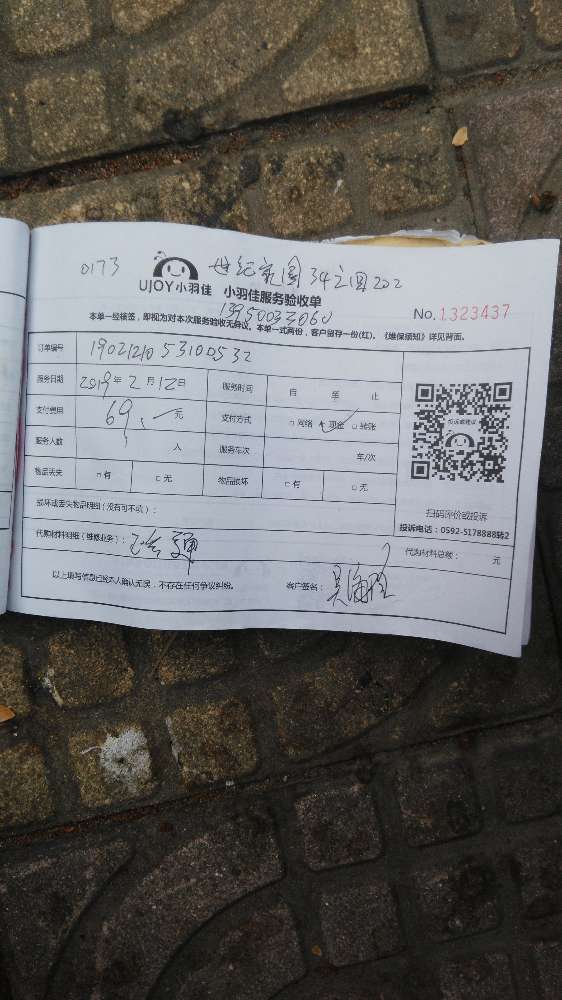 0173 世纪家园34之图202
UJOY小羽佳 小羽佳服务验收单
13950033060
No.1323437
本单一经核签，即视为对本次服务验收无异议。本单一式两份，客户留存一份(红)。《维保须知》详见背面。
订单编号 1902121053100532
服务日期 2019年2月12日 服务时间 自 至 止
支付费用 69.— 元 支付方式 □网络 ✓现金 □转账
服务人数 1 人 服务车次 车/次
物品丢失 □有 □无 物品损坏 □有 □无
投诉或建议
扫码评价或投诉
投诉电话：0592-5178888转2
损坏或丢失物品明细（没有可不填）：
代购材料明细（维修业务）： 代购材料总额： 元
以上填写信息已经本人确认无误，不存在任何争议纠纷。 客户签名：